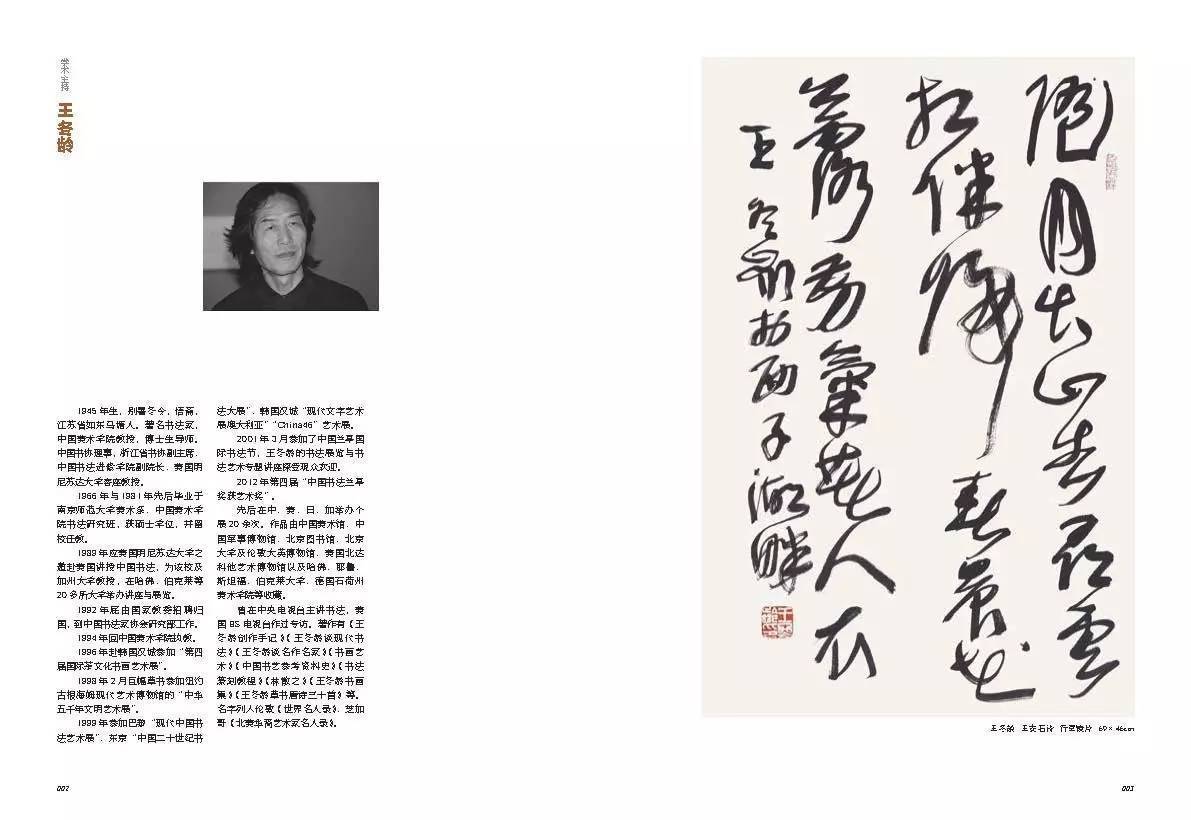 学术主持
王冬龄
1945 年生，别署冬令，悟斋，
江苏省如东马塘人。著名书法家，
中国美术学院教授，博士生导师。
中国书协理事，浙江省书协副主席，
中国书法进修学院副院长，美国明
尼苏达大学客座教授。
1966 年与 1981 年先后毕业于
南京师范大学美术系、中国美术学
院书法研究班，获硕士学位，并留
校任教。
1989 年应美国明尼苏达大学之
邀赴美国讲授中国书法，为该校及
加州大学教授，在哈佛、伯克莱等
20 多所大学举办讲座与展览。
1992 年底由国家教委招聘归
国，到中国书法家协会研究部工作。
1994 年回中国美术学院执教。
1996 年赴韩国汉城参加“第四
届国际茶文化书画艺术展”。
1998 年 2 月巨幅草书参加纽约
古根海姆现代艺术博物馆的“中华
五千年文明艺术展”。
1999 年参加巴黎“现代中国书
法艺术展”、东京“中国二十世纪书
法大展”、韩国汉城“现代文字艺术
展澳大利亚”“China46”艺术展。
2001 年 3 月参加了中国兰亭国
际书法节，王冬龄的书法展览与书
法艺术专题讲座深受观众欢迎。
2012 年第四届“中国书法兰亭
奖获艺术奖”。
先后在中、美、日、加举办个
展 20 余次。作品由中国美术馆、中
国军事博物馆、北京图书馆、北京
大学及伦敦大英博物馆、美国北达
科他艺术博物馆以及哈佛、耶鲁、
斯坦福、伯克莱大学、德国石荷州
美术学院等收藏。
曾在中央电视台主讲书法，美
国 BS 电视台作过专访。著作有《王
冬龄创作手记》《王冬龄谈现代书
法》《王冬龄谈名作名家》《书画艺
术》《中国书艺参考资料史》《书法
篆刻教程》《林散之》《王冬龄书画
集》《王冬龄草书唐诗三十首》等。
名字列入伦敦《世界名人录》、芝加
哥《北美华裔艺术家名人录》。
随月出山去尋雲
相伴歸春晨花
上露芳氣著人衣
王冬齡於西子湖畔
王冬龄 王安石诗 行草镜片 69×46cm
002
003